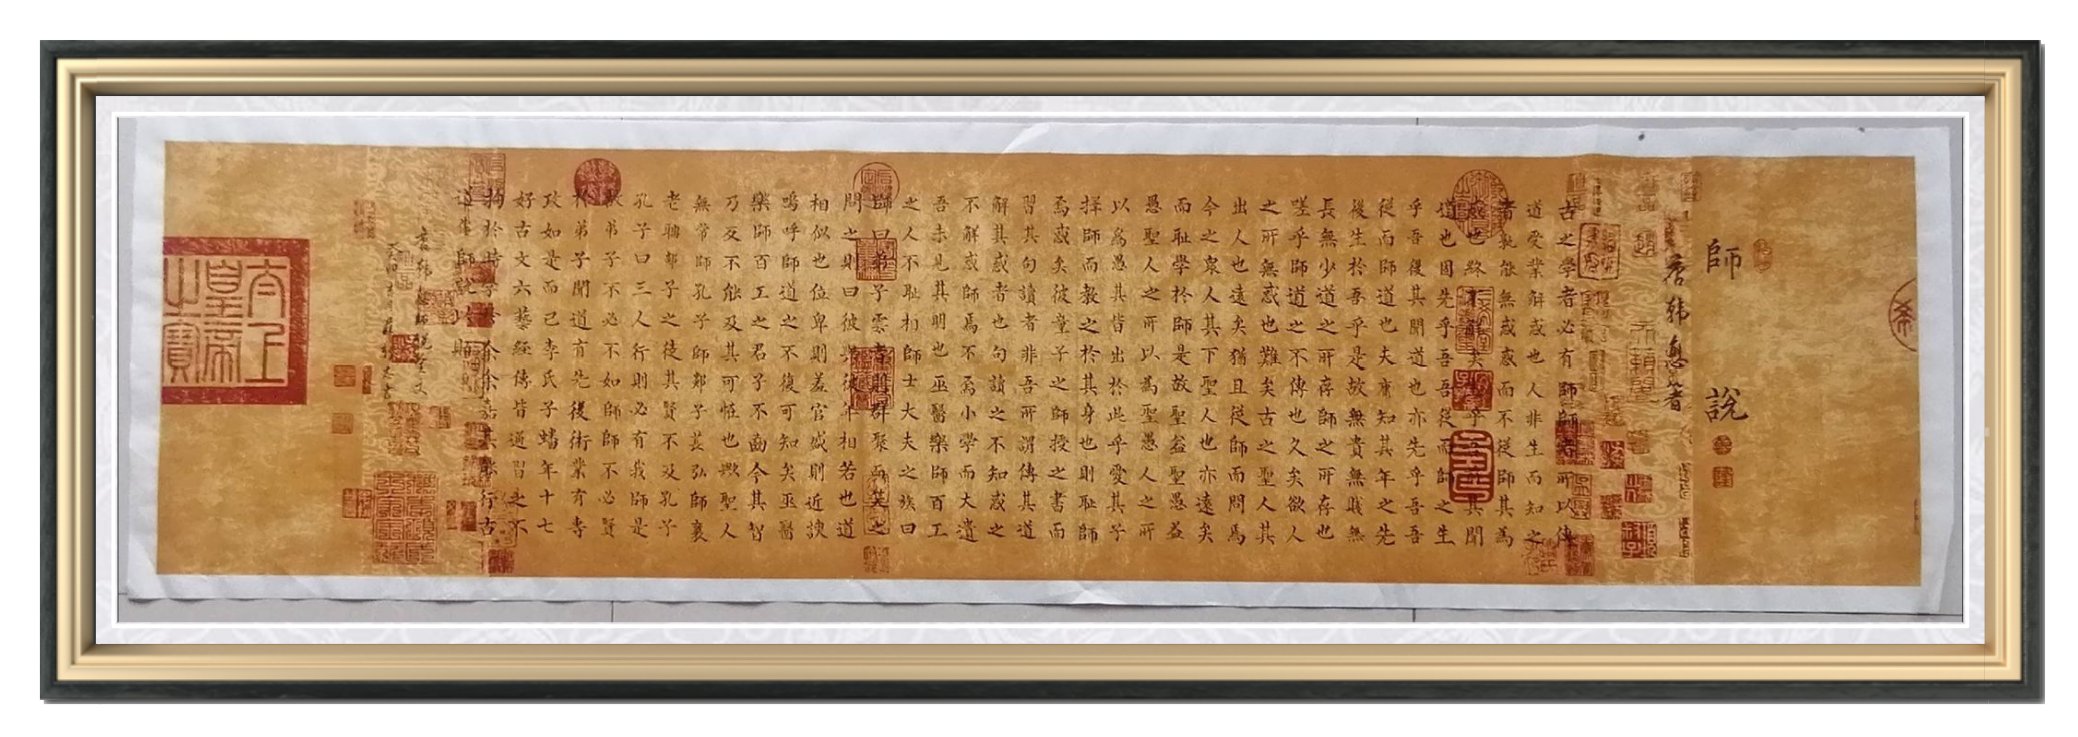 師說
唐韓愈著
古之學者必有師師者所以傳
道受業解惑也人非生而知之
者孰能無惑惑而不從師其為
惑也終不解矣生乎吾前其聞
道也固先乎吾吾從而師之生
乎吾後其聞道也亦先乎吾吾
從而師道也夫庸知其年之先
後生於吾乎是故無貴無賤無
長無少道之所存師之所存也
嗟乎師道之不傳也久矣欲人
之所無惑也難矣古之聖人其
出人也遠矣猶且從師而問焉
今之衆人其下聖人也亦遠矣
而耻學於師是故聖益聖愚益
愚聖人之所以為聖愚人之所
以為愚其皆出於此乎愛其子
擇師而教之於其身也則耻師
焉惑矣彼童子之師授之書而
習其句讀者非吾所謂傳其道
解其惑者也句讀之不知惑之
不解或師焉不焉小學而大遺
吾未見其明也巫醫樂師百工
之人不耻相師士大夫之族曰
師曰弟子雲者則群聚而笑之
問之則曰彼與彼年相若也道
相似也位卑則羞官盛則近諛
嗚呼師道之不復可知矣巫醫
樂師百工之君子不齒今其智
乃反不能及其可怪也歟聖人
無常師孔子師郯子萇弘師襄
老聃郯子之徒其賢不及孔子
孔子曰三人行則必有我師是
故弟子不必不如師師不必賢
於弟子聞道有先後術業有專
攻如是而已李氏子蟠年十七
好古文六藝經傳皆通習之不
拘於時學於余余嘉其能行古
道作師說以貽
書韓愈師說全文
太上皇帝之寶